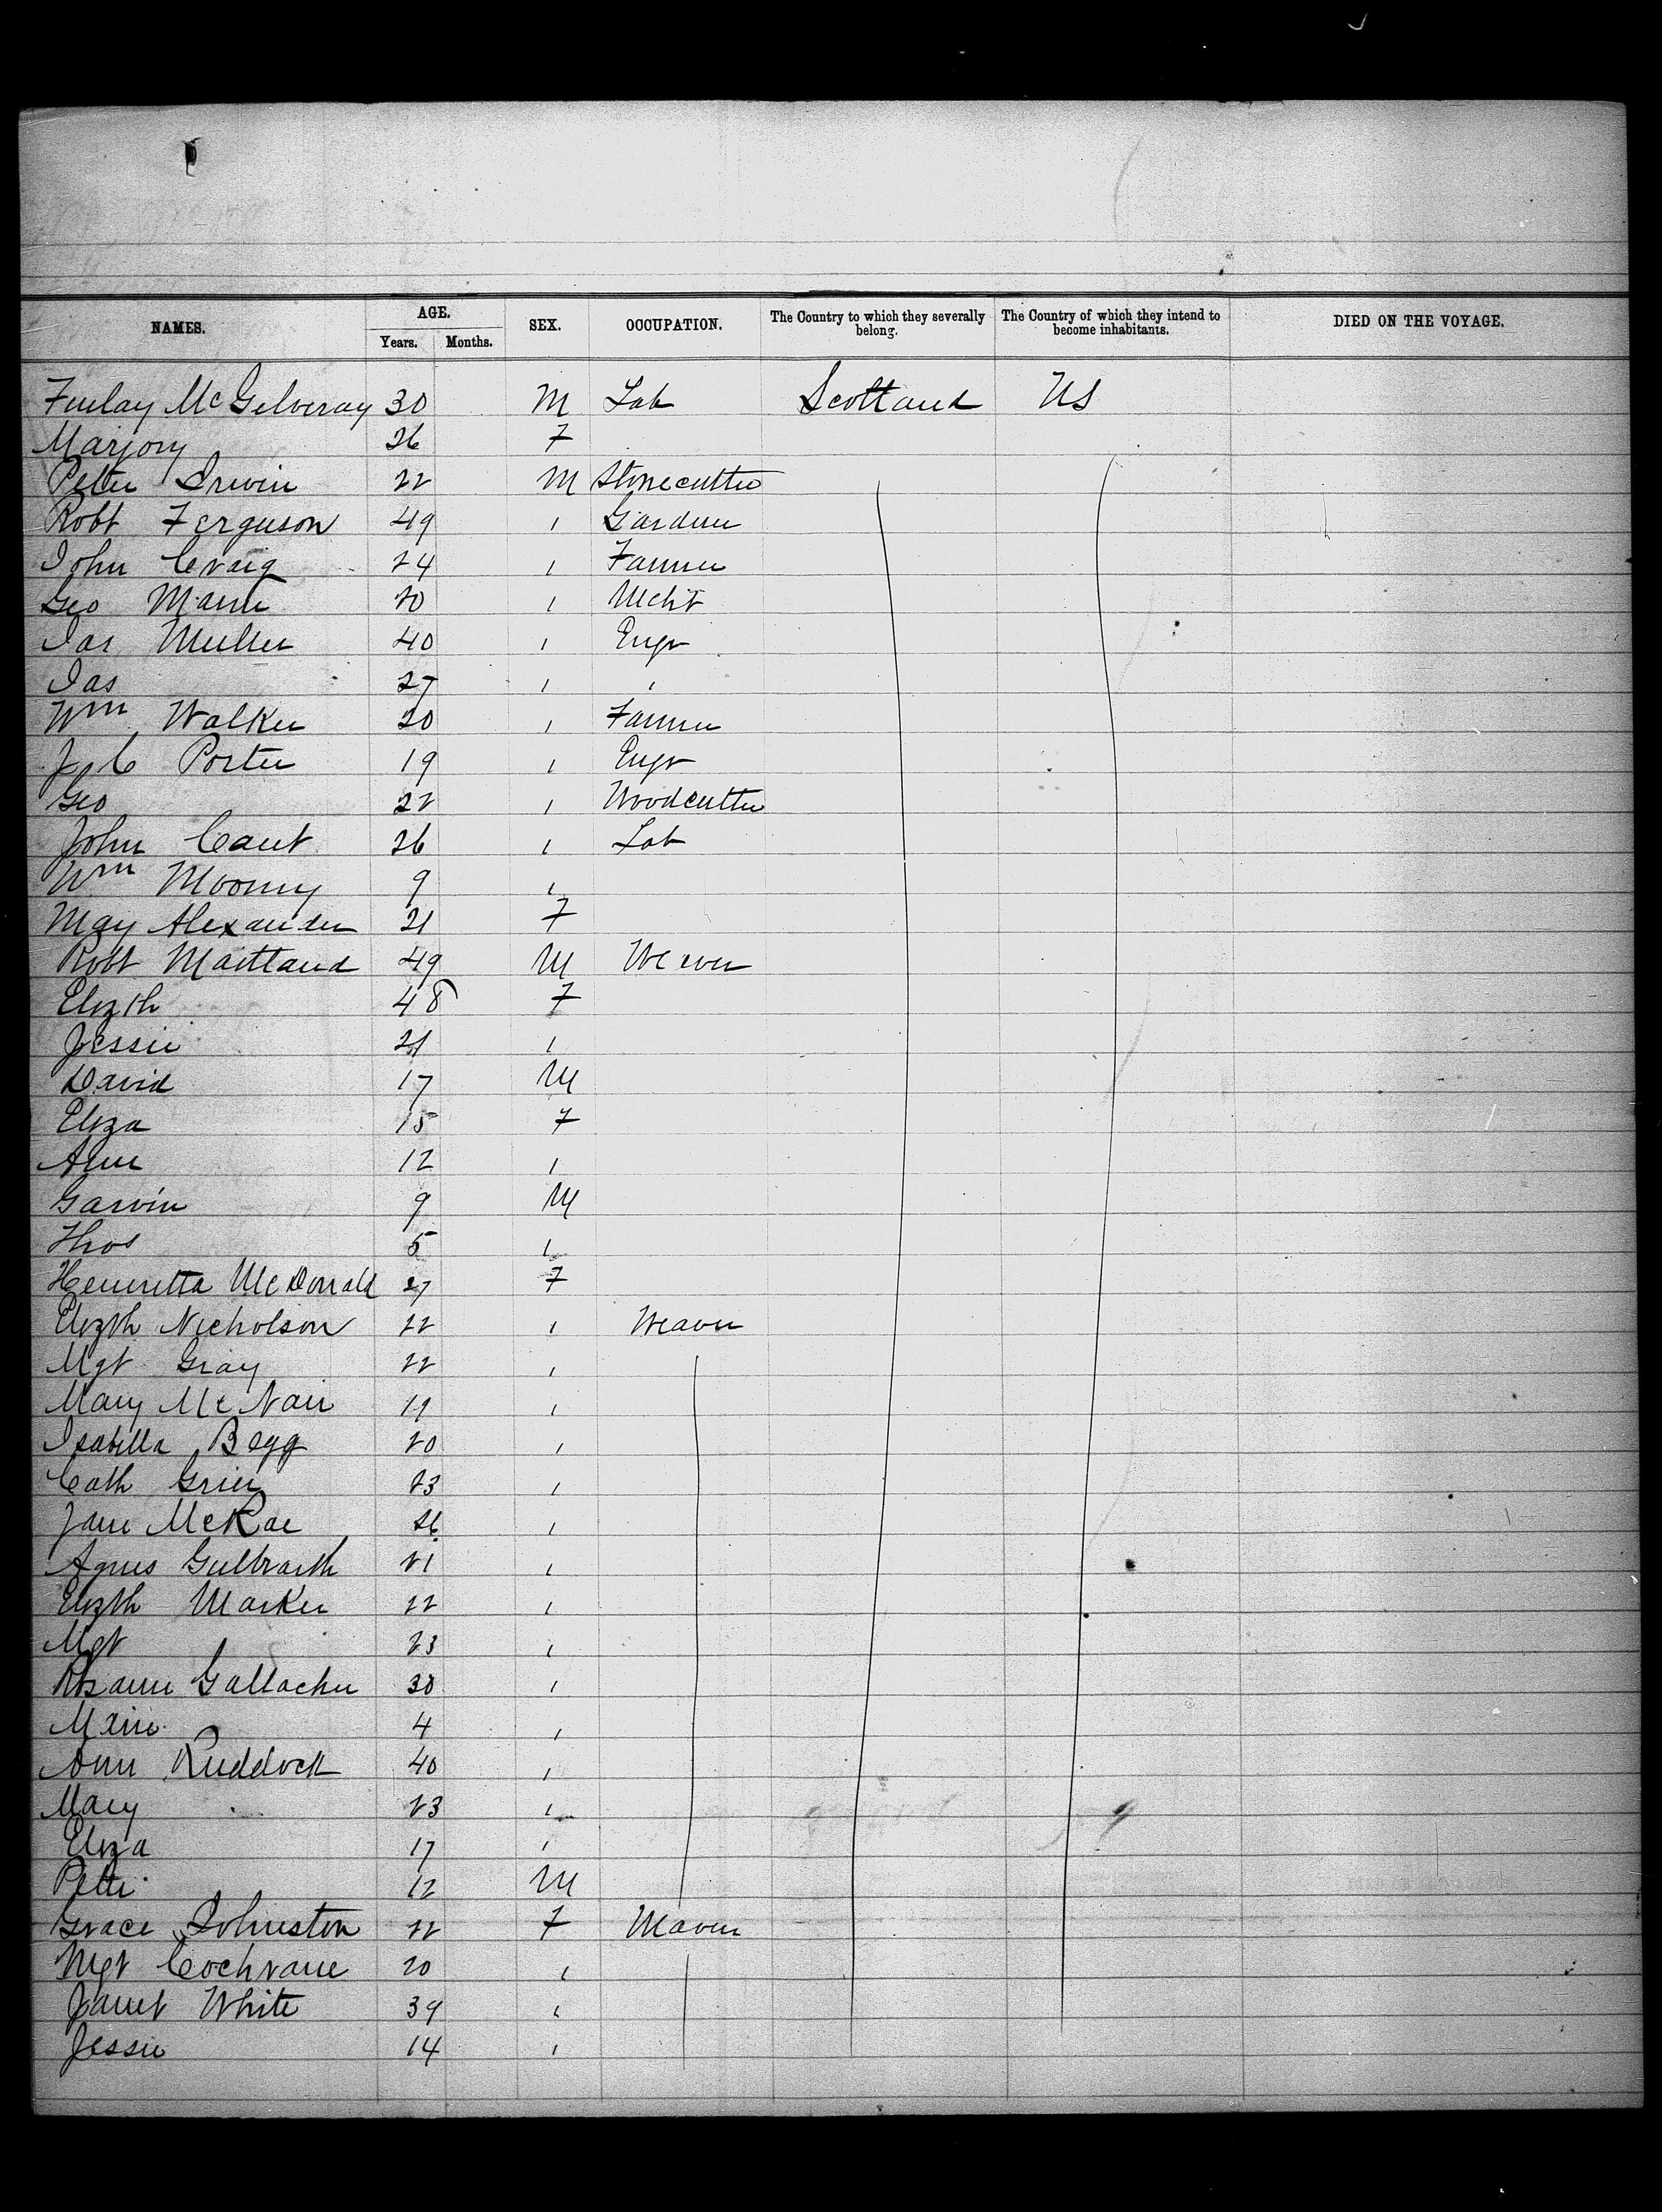 NAMES. AGE. SEX. OCCUPATION. The Country to which they severally belong. The Country of which they intend to become inhabitants. DIED ON THE VOYAGE.
Years. Months.
Finlay McGelveray 30 M Lab Scotland US
Marjory 26 F
Peter Irwin 22 M Stonecutter
Robt Ferguson 49 " Gardner
John Craig 24 " Farmer
Geo Mann 20 " Mcht
Jas Muller 40 " Engr
Jas 27 " "
Wm Walker 20 " Farmer
J C Porter 19 " Engr
Geo 22 " Woodcutter
John Cant 26 " Lab
Wm Moony 9 "
May Alexander 21 F
Robt Maitland 49 M Weaver
Elizth 48 F
Jessie 21 "
David 17 M
Eliza 15 F
Ann 12 "
Garvin 9 M
Thos 5 "
Henrietta McDonald 27 F
Elizth Nicholson 22 " Weaver
Mgt Gray 22 "
Mary McNair 19 "
Isabella Begg 20 "
Cath Grier 23 "
Jane McRae 26 "
Agnes Gulbraith 21 "
Elizth Marker 22 "
Mgt 23 "
Rosann Gallacher 30 "
4 "
Ann Ruddock 40 "
Mary 23 "
Eliza 17 "
Peter 12 M
Grace Johnston 22 F Weaver
Mgt Cochrane 20 "
Janet White 39 "
Jessie 14 "